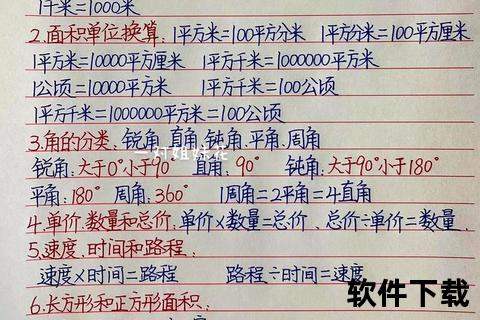 1千米=1000米
2.面积单位换算：1平方米=100平方分米 1平方分米=100平方厘米
1平方米=10000平方厘米 1平方千米=1000000平方米
1公顷=10000平方米 1平方千米=100公顷
1平方千米=1000000平方米=100公顷
3.角的分类：锐角、直角、钝角、平角、周角
一对姐妹花
锐角：大于0°小于90° 直角：90° 钝角：大于90°小于180°
平角：180° 周角：360° 1周角=2平角=4直角
4.单价、数量和总价：单价×数量=总价、总价÷单价=数量.
5.速度、时间和路程：
速度×时间=路程 路程÷时间=速度
6.长方形和正方形面积：
软件下载